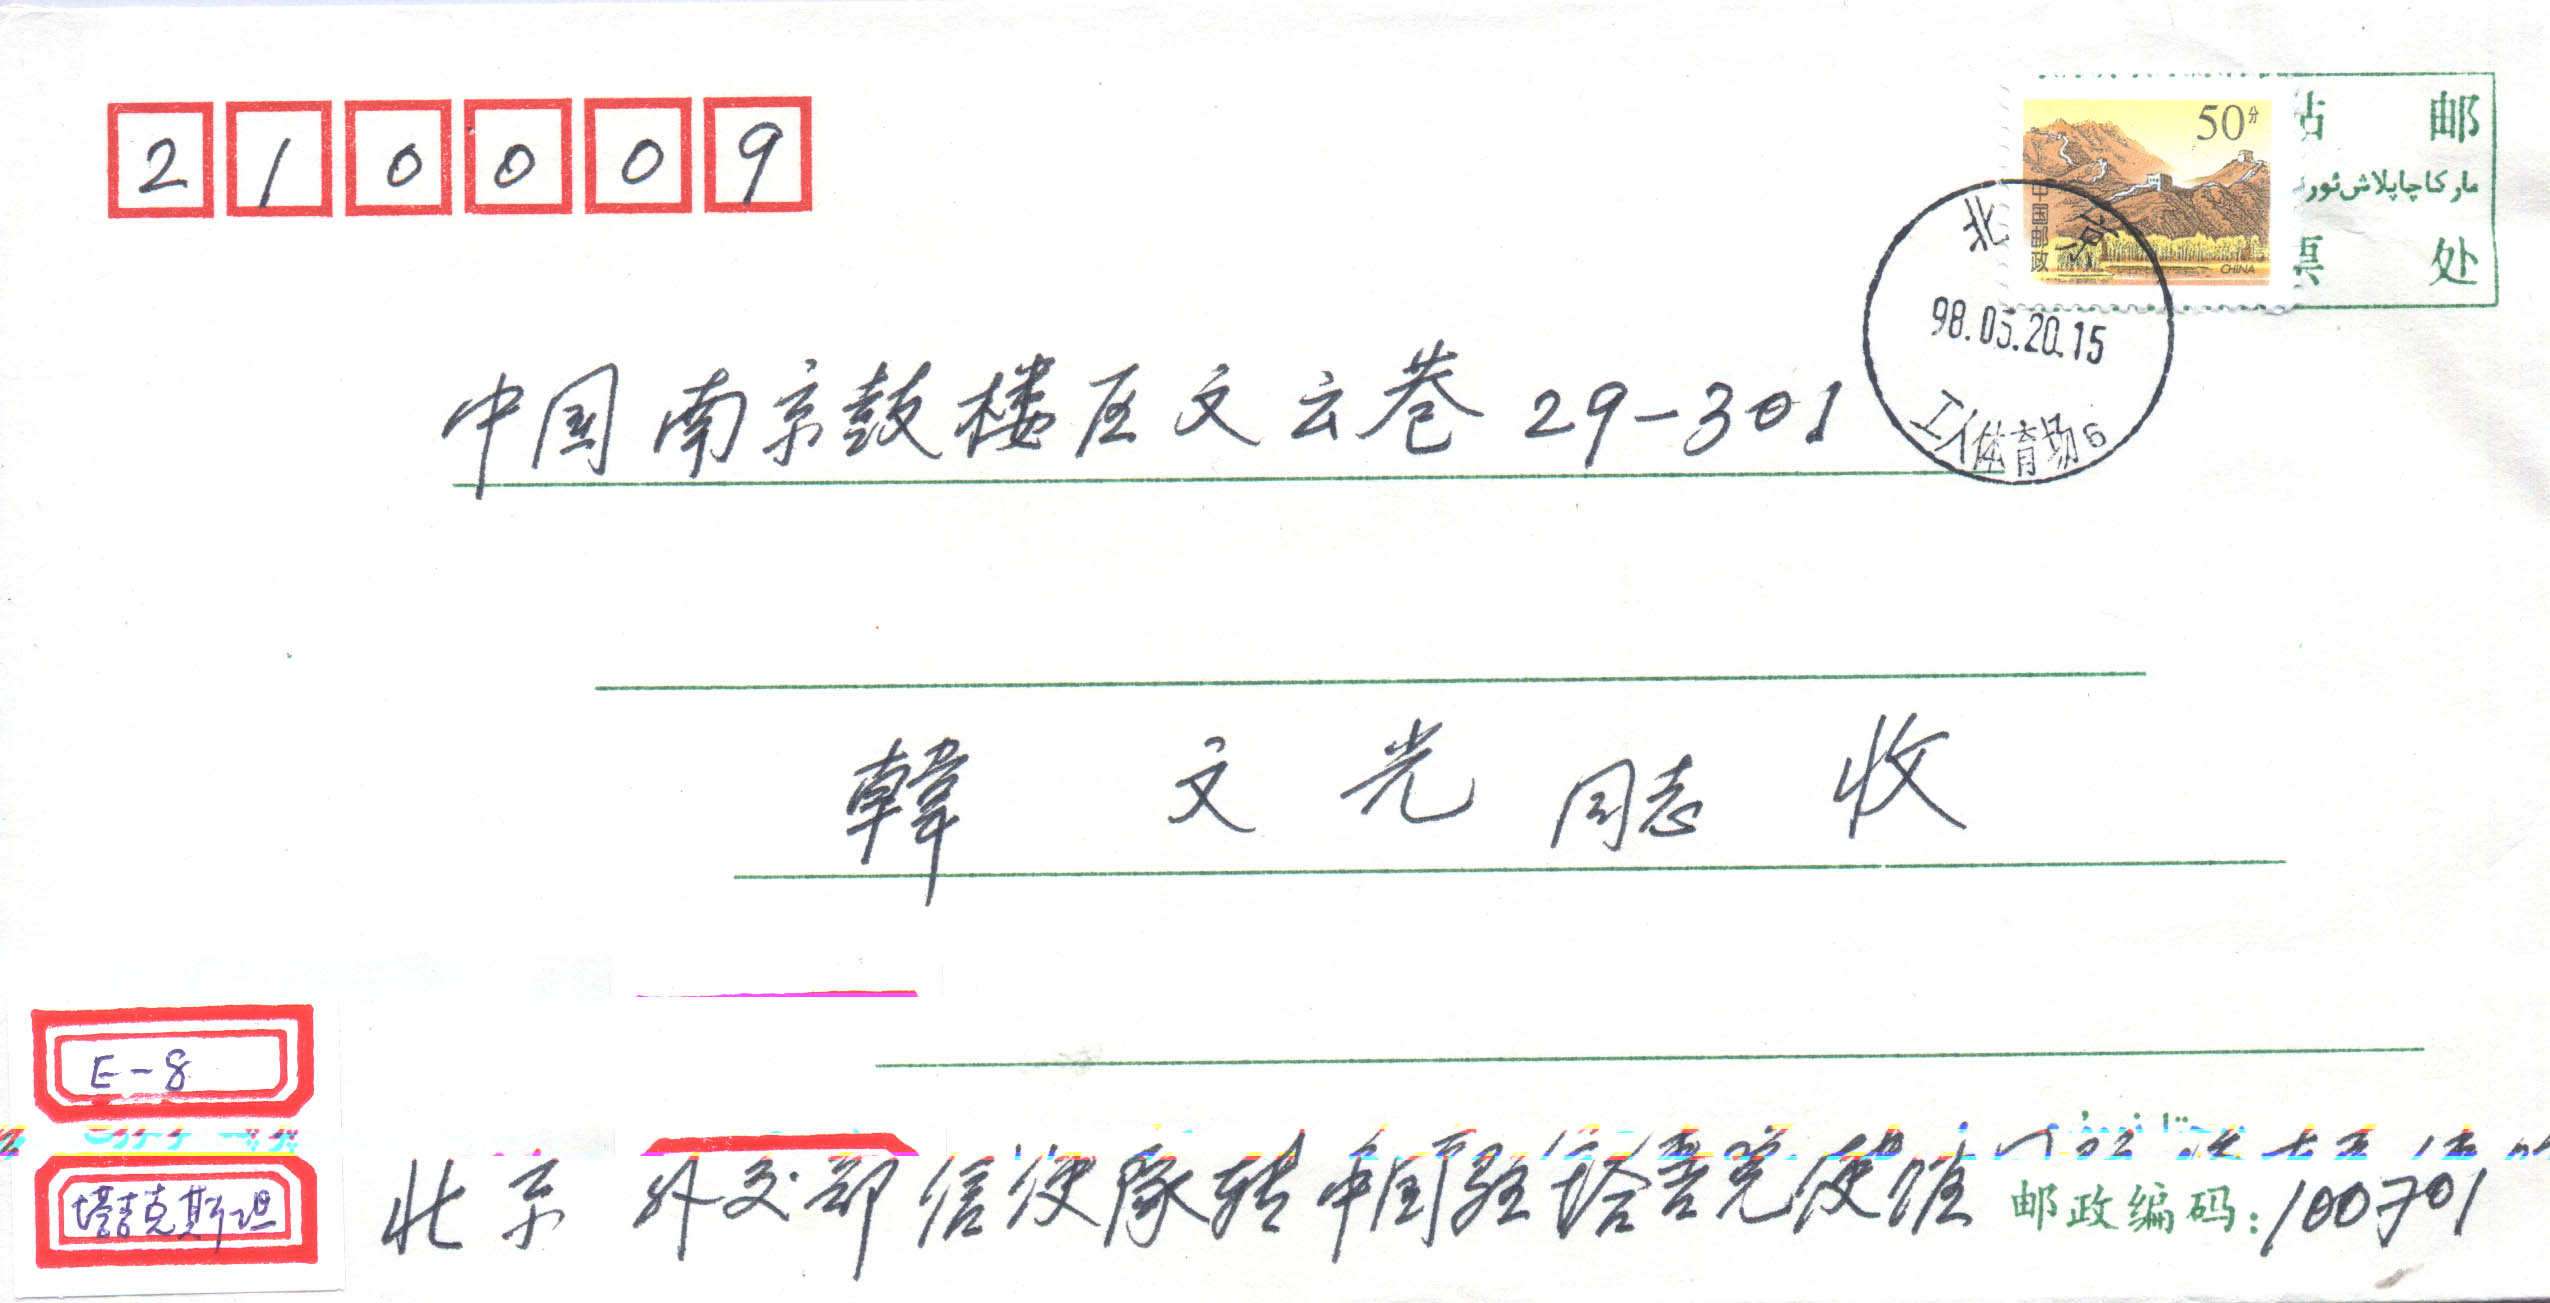 210009
50分
中国邮政
CHINA
邮
مار كا چاپلاش ئور
处
北京
98.05.20.15
工人体育场6
中国南京鼓楼区文云巷29-301
韓 文 光 同志 收
E-8
塔吉克斯坦
北京 外交部信使隊转中国驻塔吉克使馆
邮政编码:100701